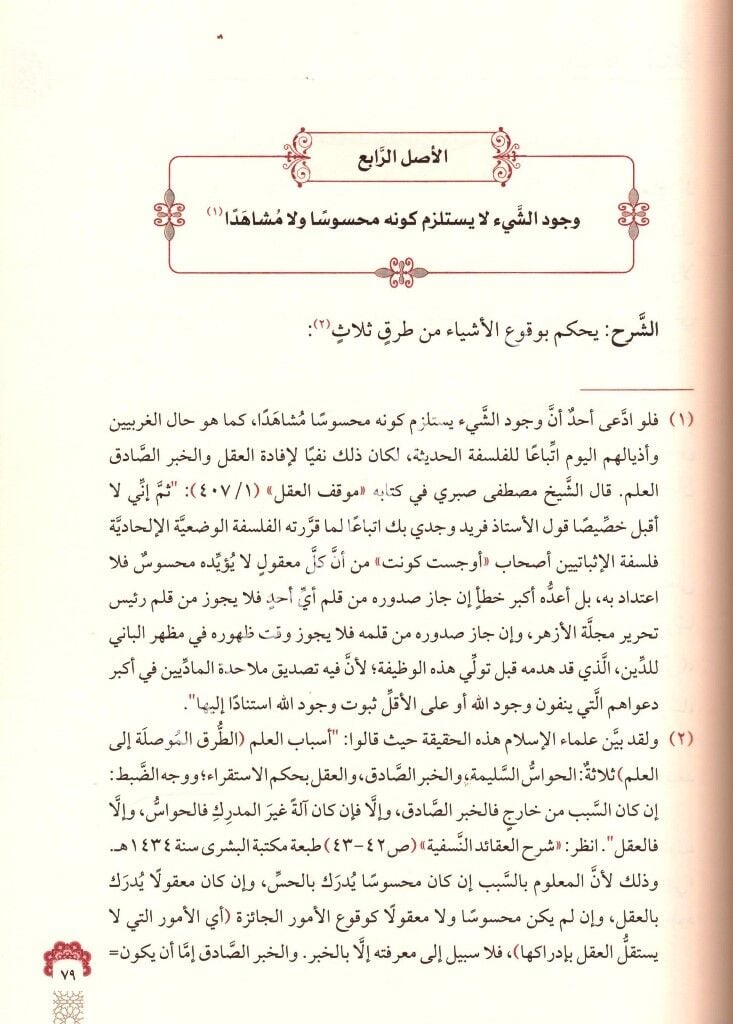 الأصل الرَّابع
وجود الشَّيء لا يستلزم كونه محسوسًا ولا مُشاهَدًا(١)
الشَّرح: يحكم بوقوع الأشياء من طرقٍ ثلاثٍ(٢):
(١) فلو ادَّعى أحدٌ أنَّ وجود الشَّيء يستلزم كونه محسوسًا مُشاهَدًا، كما هو حال الغربيين
وأذيالهم اليوم اتِّباعًا للفلسفة الحديثة، لكان ذلك نفيًا لإفادة العقل والخبر الصَّادق
العلم. قال الشَّيخ مصطفى صبري في كتابه «موقف العقل» (١/ ٤٠٧): "ثمَّ إنِّي لا
أقبل خصِّيصًا قول الأستاذ فريد وجدي بك اتباعًا لما قرَّرته الفلسفة الوضعيَّة الإلحاديَّة
فلسفة الإثباتيين أصحاب «أوجست كونت» من أنَّ كلَّ معقولٍ لا يُؤيِّده محسوسٌ فلا
اعتداد به، بل أعدُّه أكبر خطأٍ إن جاز صدوره من قلم أيِّ أحدٍ فلا يجوز من قلم رئيس
تحرير مجلَّة الأزهر، وإن جاز صدوره من قلمه فلا يجوز وقت ظهوره في مظهر الباني
للدِّين، الَّذي قد هدمه قبل تولِّي هذه الوظيفة؛ لأنَّ فيه تصديق ملاحدة المادِّيين في أكبر
دعواهم الَّتي ينفون وجود الله أو على الأقلِّ ثبوت وجود الله استنادًا إليها".
(٢) ولقد بيَّن علماء الإسلام هذه الحقيقة حيث قالوا: "أسباب العلم (الطُّرق المُوصلَة إلى
العلم) ثلاثةٌ: الحواسُّ السَّليمة، والخبر الصَّادق، والعقل بحكم الاستقراء؛ ووجه الضَّبط:
إن كان السَّبب من خارجٍ فالخبر الصَّادق، وإلَّا فإن كان آلةً غيرَ المدرِكِ فالحواسُّ، وإلَّا
فالعقل". انظر: «شرح العقائد النَّسفية» (ص٤٢-٤٣) طبعة مكتبة البشرى سنة ١٤٣٤هـ.
وذلك لأنَّ المعلوم بالسَّبب إن كان محسوسًا يُدرَك بالحسِّ، وإن كان معقولًا يُدرَك
بالعقل، وإن لم يكن محسوسًا ولا معقولًا كوقوع الأمور الجائزة (أي الأمور التي لا
يستقلُّ العقل بإدراكها)، فلا سبيل إلى معرفته إلَّا بالخبر. والخبر الصَّادق إمَّا أن يكون=
٧٩